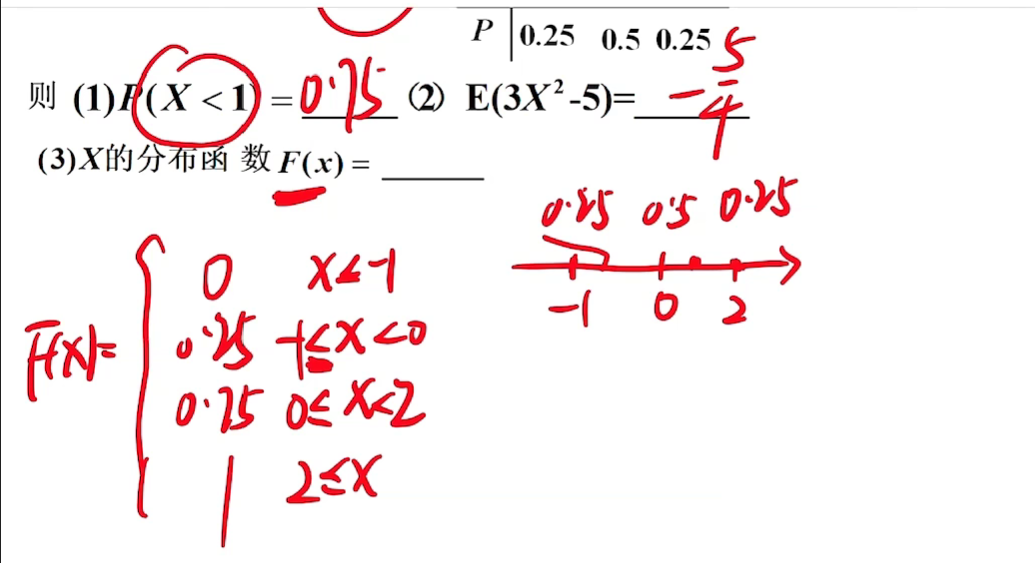 P 0.25 0.5 0.25
则 (1)P(X<1)=0.75 (2) E(3X²-5)= -5/4
(3)X的分布函 数 F(x)=
0.25 0.5 0.25
-1 0 2
F(x)=
0 x<-1
0.25 -1≤x<0
0.75 0≤x<2
1 2≤x